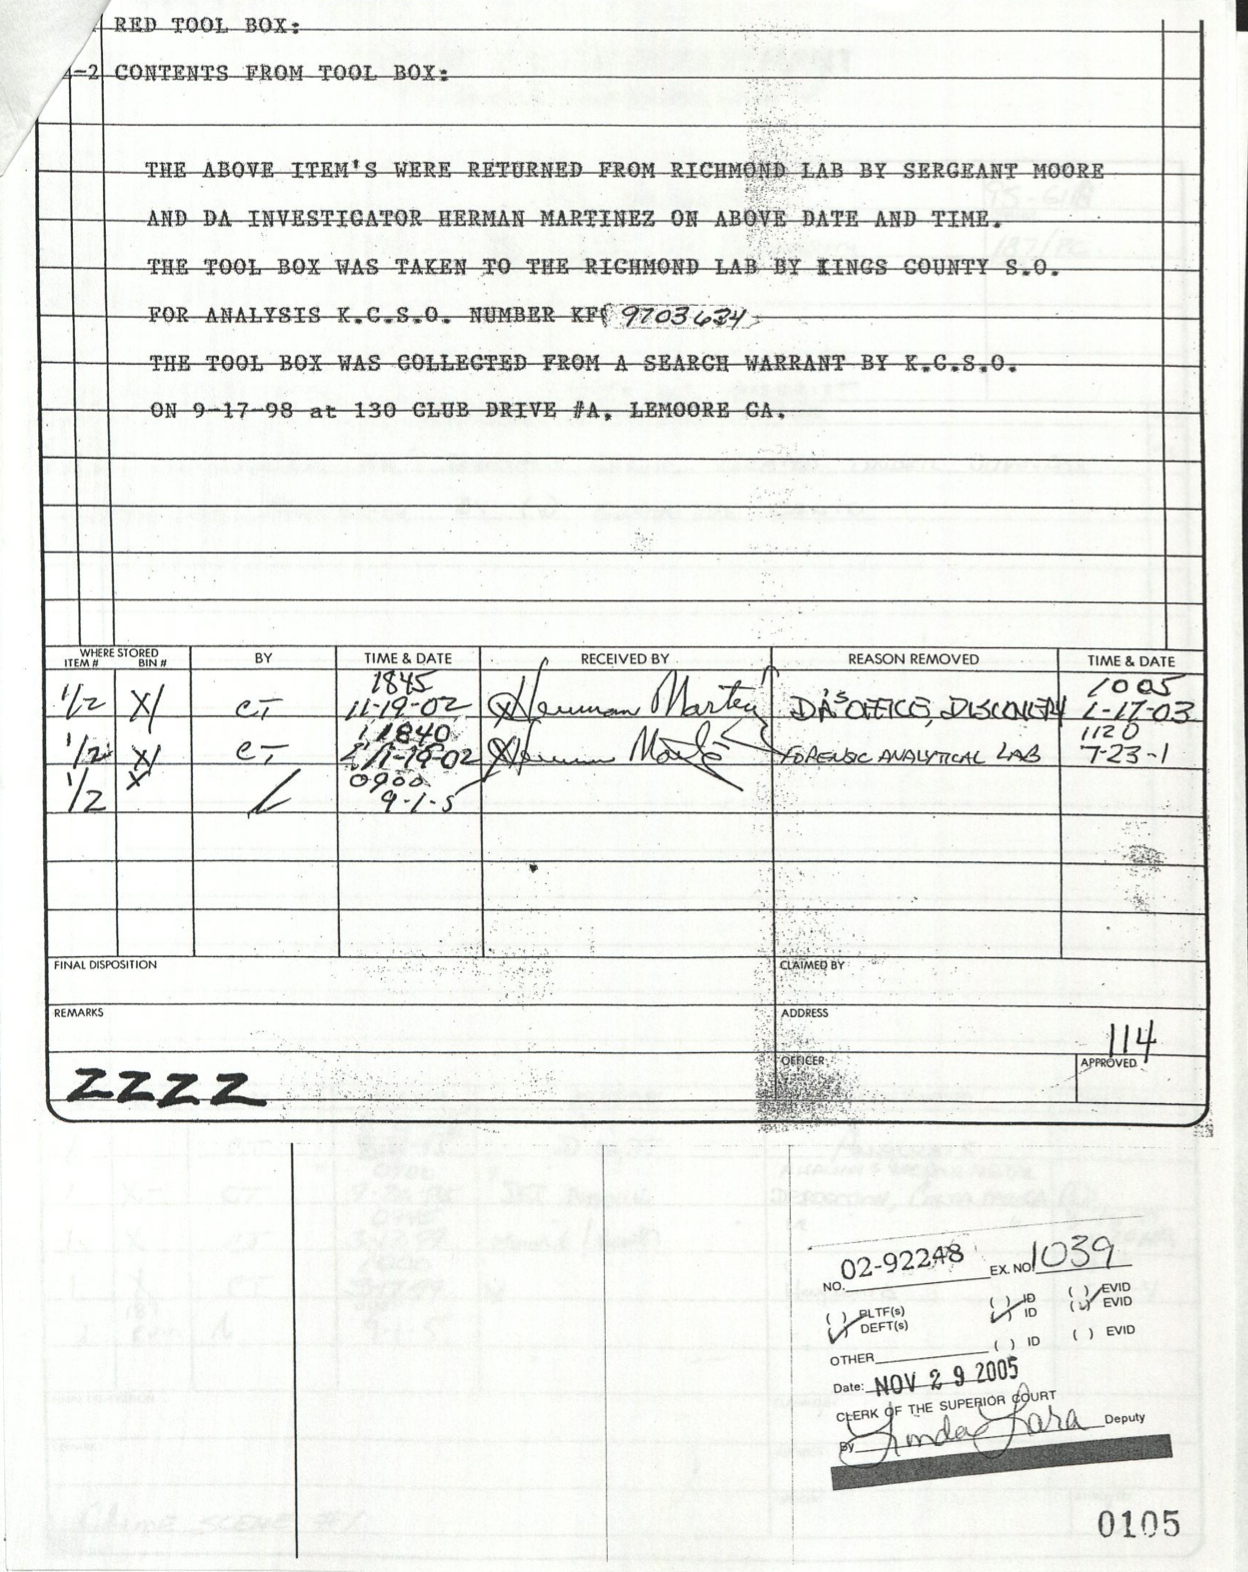 RED TOOL BOX:
-2 CONTENTS FROM TOOL BOX:
THE ABOVE ITEM'S WERE RETURNED FROM RICHMOND LAB BY SERGEANT MOORE
AND DA INVESTIGATOR HERMAN MARTINEZ ON ABOVE DATE AND TIME.
THE TOOL BOX WAS TAKEN TO THE RICHMOND LAB BY KINGS COUNTY S.O.
FOR ANALYSIS K.C.S.O. NUMBER KF( 9703634
THE TOOL BOX WAS COLLECTED FROM A SEARCH WARRANT BY K.C.S.O.
ON 9-17-98 at 130 CLUB DRIVE #A, LEMOORE CA.
WHERE STORED
ITEM # BIN # BY TIME & DATE RECEIVED BY REASON REMOVED TIME & DATE
1845 1005
1/2 X/ CT 11-19-02 Herman DA'S OFFICE, DISCOVERY 1-17-03
1840 1120
1/2 X/ CT 11-19-02 Herman FORENSIC ANALYTICAL LAB 7-23-1
0900
1/2 X 9-1-5
FINAL DISPOSITION CLAIMED BY
REMARKS ADDRESS
114
OFFICER APPROVED
ZZZZ
NO. 02-92248 EX. NO. 1039
( ) PLTF(s) ( ) ID ( ) EVID
DEFT(s) ( ) ID ( ) EVID
OTHER ( ) ID ( ) EVID
Date: NOV 29 2005
CLERK OF THE SUPERIOR COURT
By Linda Lara Deputy
0105